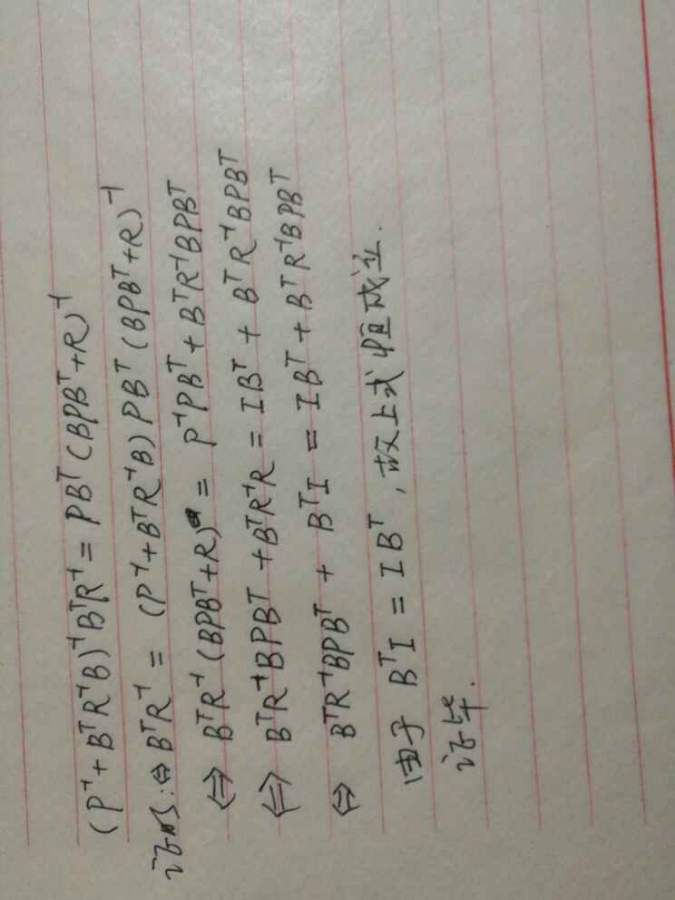 (P⁻¹+BᵀR⁻¹B)⁻¹BᵀR⁻¹=PBᵀ(BPBᵀ+R)⁻¹
证明:⇔BᵀR⁻¹=(P⁻¹+BᵀR⁻¹B)PBᵀ(BPBᵀ+R)⁻¹
⇔BᵀR⁻¹(BPBᵀ+R)=P⁻¹PBᵀ+BᵀR⁻¹BPBᵀ
⇔BᵀR⁻¹BPBᵀ+BᵀR⁻¹R=IBᵀ+BᵀR⁻¹BPBᵀ
⇔BᵀR⁻¹BPBᵀ+BᵀI=IBᵀ+BᵀR⁻¹BPBᵀ
由于BᵀI=IBᵀ,故上式恒成立.
证毕.